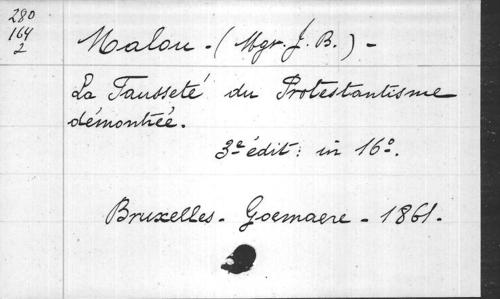 280
164
2
Malou - (Mgr. J. B.) -
La Fausseté du Protestantisme
démontrée.
3e édit: in 16o.
Bruxelles - Goemaere - 1861.